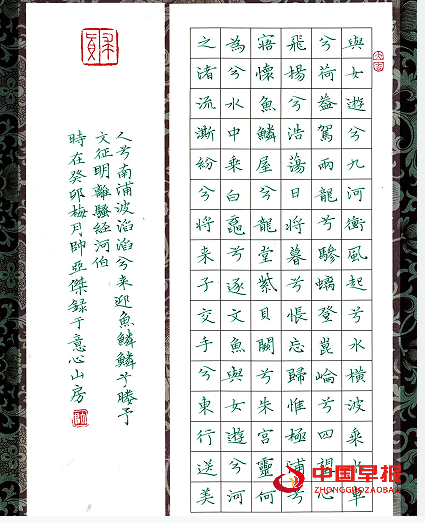 與女遊兮九河衝風起兮水橫波乘水車
兮荷蓋駕兩龍兮驂螭登崑崙兮四望心
飛揚兮浩蕩日將暮兮悵忘歸惟極浦兮
寤懷魚鱗屋兮龍堂紫貝闕兮朱宮靈何
為兮水中乘白黿兮逐文魚與女遊兮河
之渚流澌紛兮將来子交手兮東行送美
人兮南浦波滔滔兮来迎魚鱗鱗兮媵予
文征明離騷經河伯
時在癸卯梅月帥亞傑録于意心山房
中国早报
ZHONGGUOZAOBAO